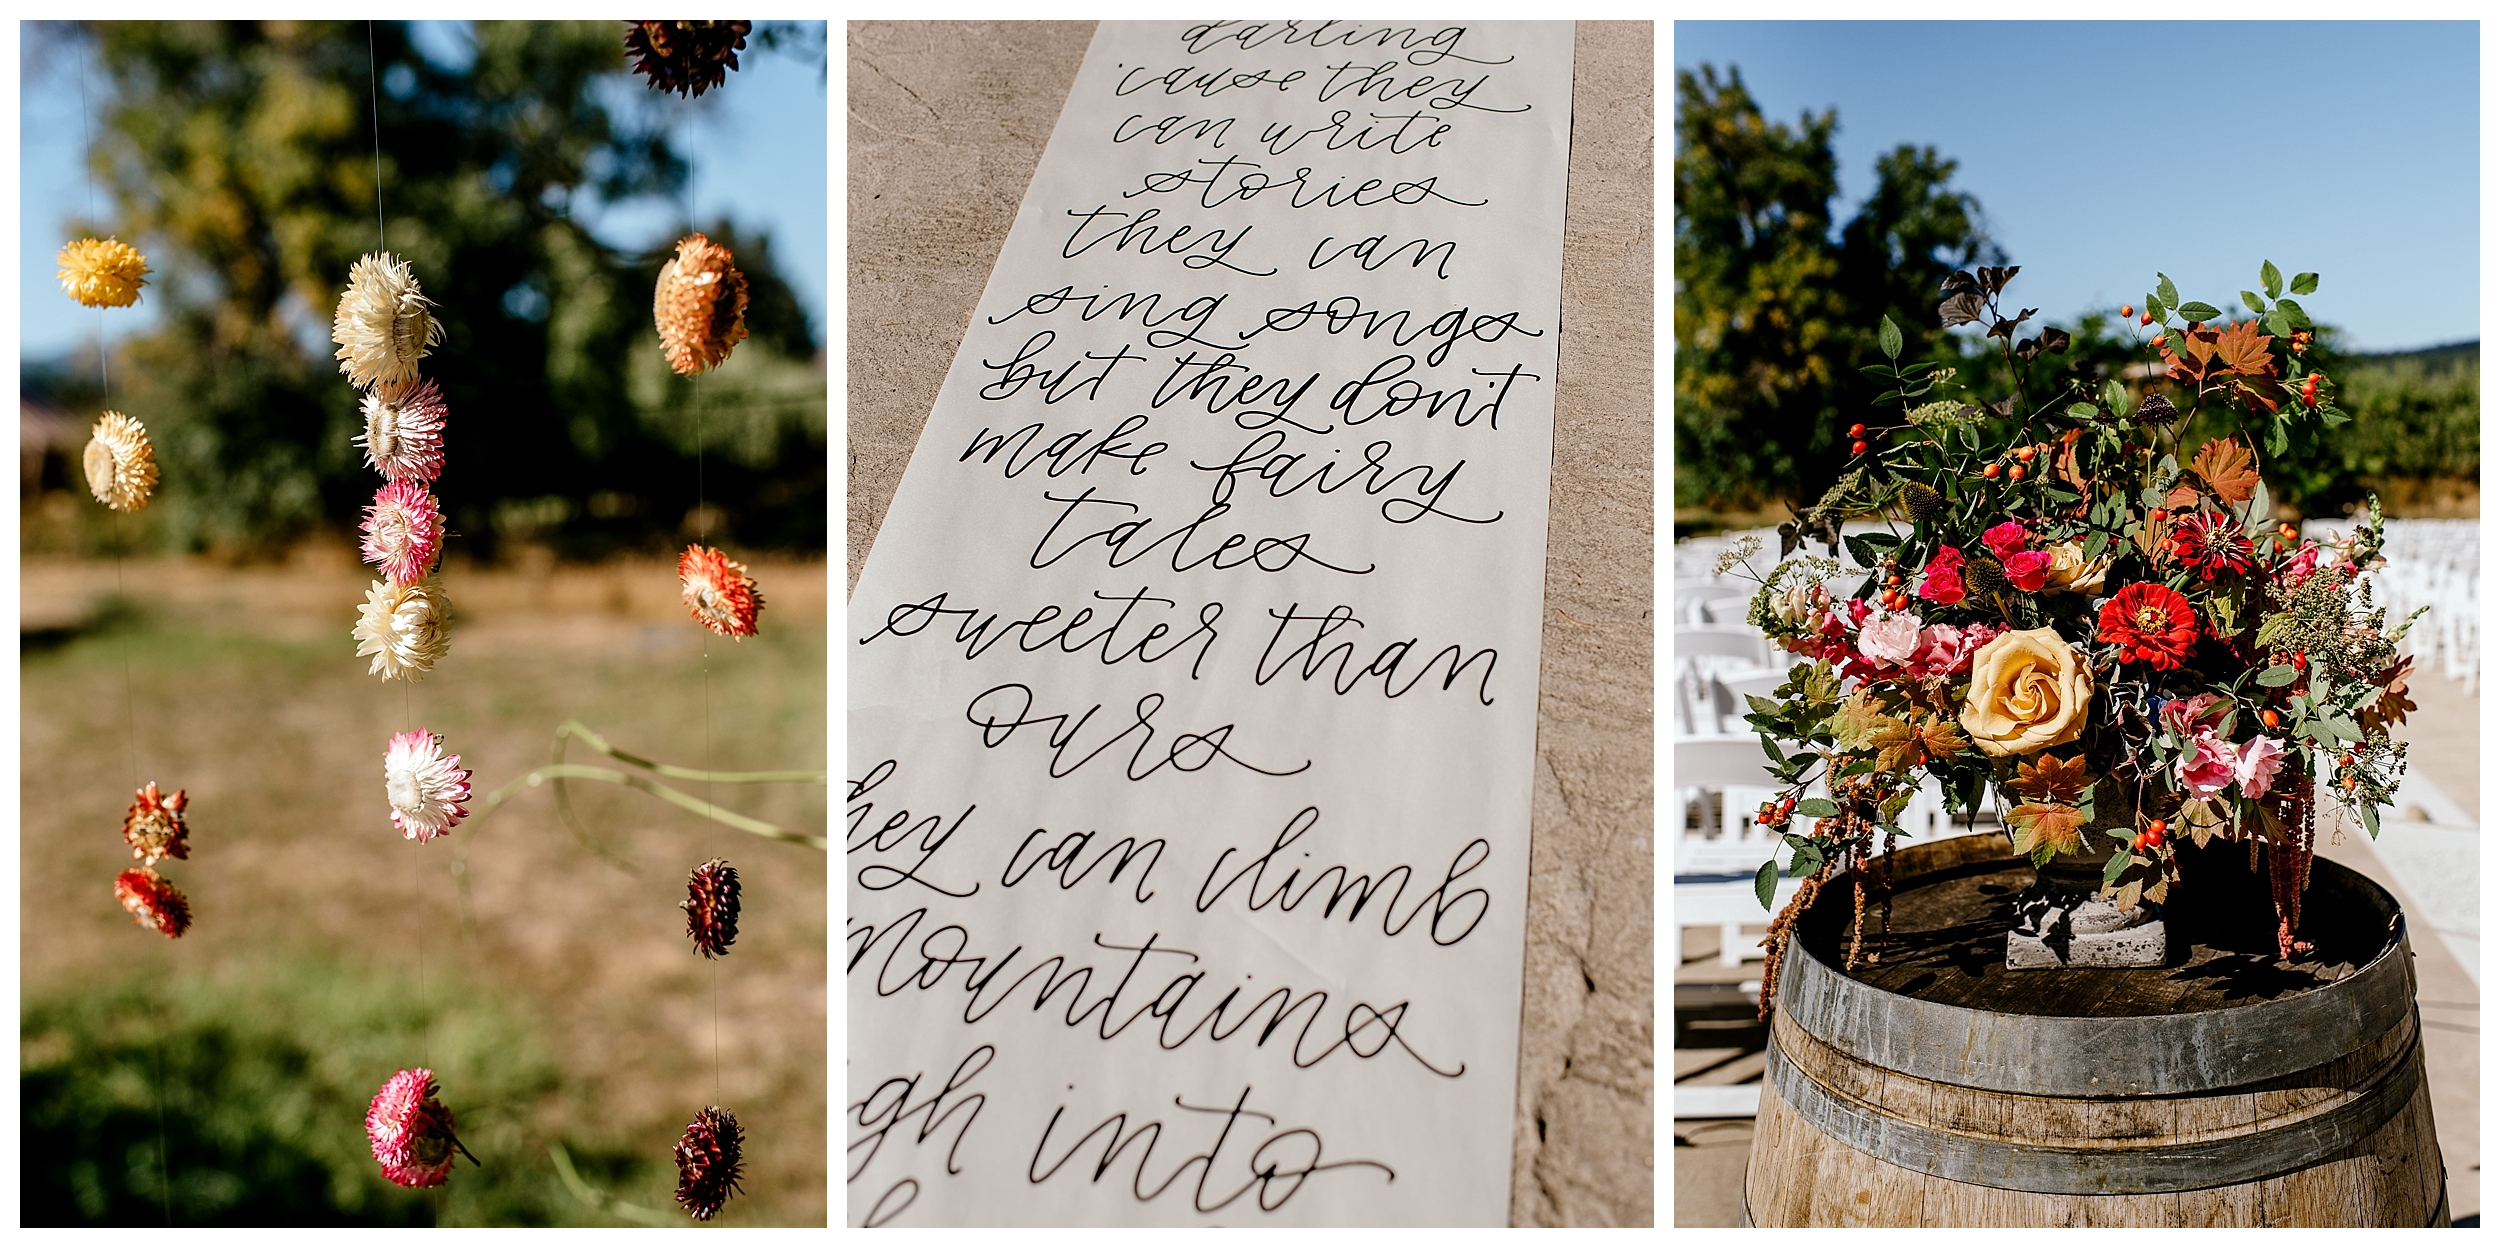 darling
'cause they
can write
stories
they can
sing songs
but they don't
make fairy
tales
sweeter than
ours
hey can climb
mountains
gh into